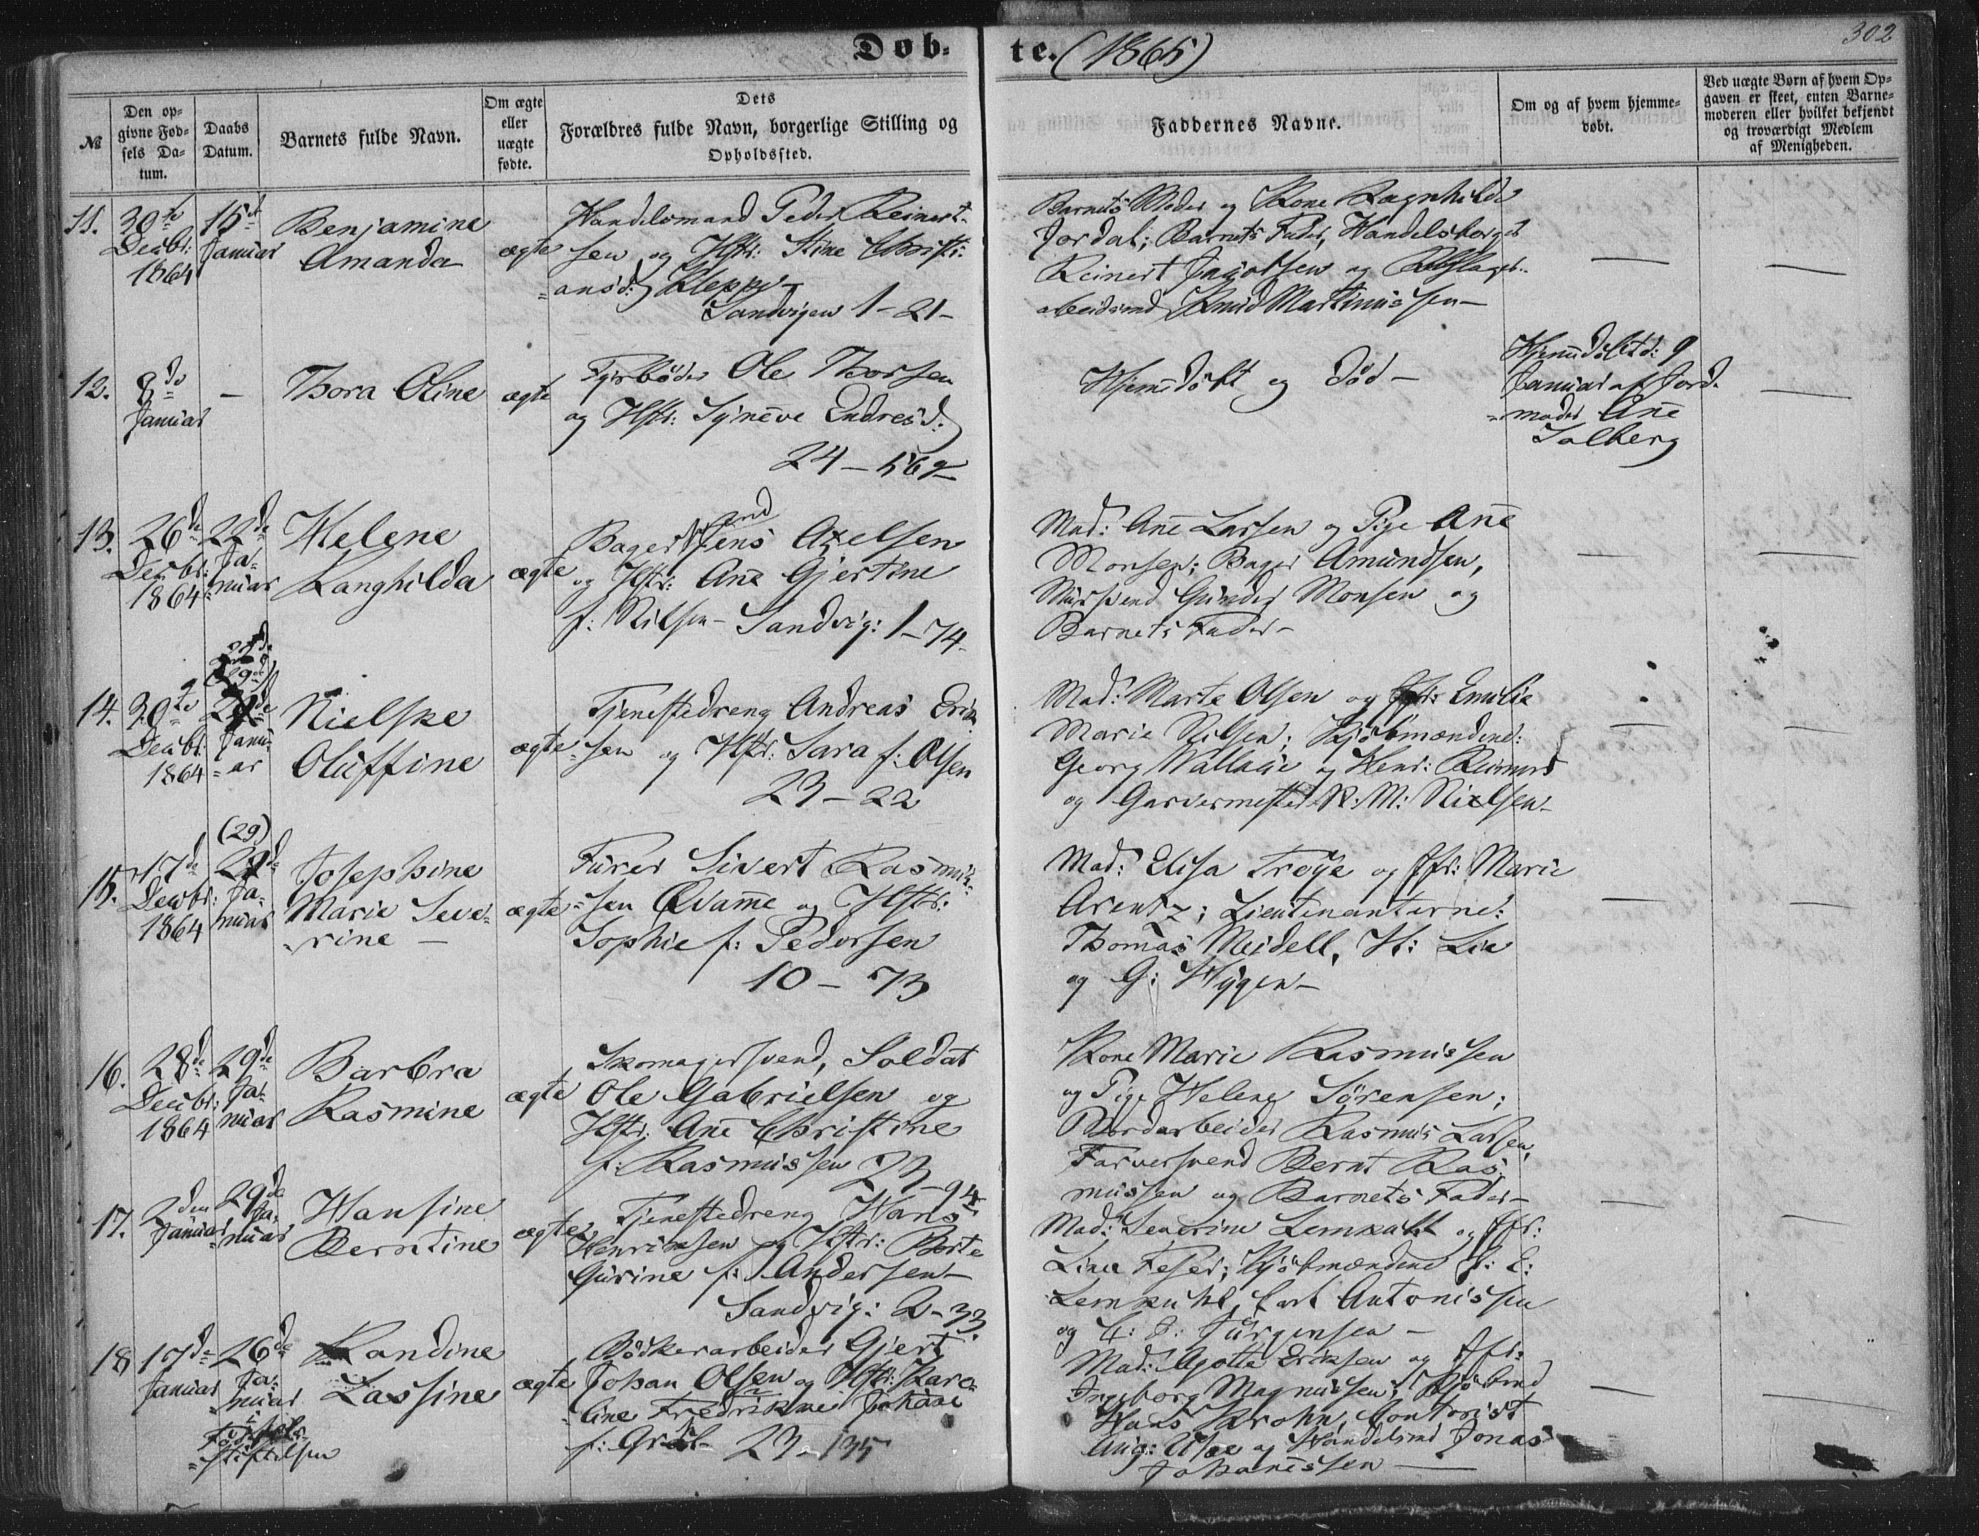 302
Døb- te. (1865)
№
Den op-
givne Fød-
sels Da-
tum.
Daabs
Datum.
Barnets fulde Navn.
Om ægte
eller
uægte
fødte.
Dets
Forældres fulde Navn, borgerlige Stilling og
Opholdssted.
Faddernes Navne.
Om og af hvem hjemme-
døbt.
Ved uægte Børn af hvem Op-
gaven er skeet, enten Barne-
moderen eller hvilket bekjendt
og troværdigt Medlem
af Menigheden.
11.
30te
Decbr:
1864
15de
Januar
Benjamine
Amanda
ægte
Handelsmand Peder Reinert-
sen og Hstr: Stine Christi-
ansd: Klepp-
Sandvigen 1-21-
Barnets Moder og Kone Ragnhilde
Jordal; Barnets Fader, Handelsborger
Reinert Jacobsen og
arbeidsmd Knud Martinussen-
—
—
12.
8de
Januar
-
Thora Oline
ægte
Fyrbøder Ole Thorsen
og Hstr: Synneve Endresd:
24-562
Hjemdøbt og død-
Hjemdøbt d: 9
Januar af Jord-
moder Ane
Solberg
—
13.
26de
Decbr:
1864
22de
Ja-
nuar
Helene
Ranghilda
ægte
Bagersvend Jens Axelsen
og Hstr: Ane Gjertine
f: Nilsen- Sandvig: 1-74-
Mad: Ane Larsen og Pige Ane
Monsen; Bager Amundsen,
Murssvend Gunder Monsen og
Barnets Fader-
—
—
14.
30te
Decbr:
1864
(29de)
Janu-
ar
Nielske
Oluffine
ægte
Tjenestedreng Andreas Erik-
sen og Hstr: Sara f: Olsen
23-22
Mad: Marte Olsen og Jfr: Emilie
Marie Nilsen; Kjøbmændene:
Georg Wallace og Henr: Reimers
og Garvermester N: M: Nielsen-
—
—
15.
17de
Decbr:
1864
(29)
29de
Ja-
nuar
Josephine
Marie Seve-
rine-
ægte
Furer Sivert Rasmus-
sen Qvamme og Hstr:
Sophie f: Pedersen
10-73
Mad: Elisa Troye og Jfr: Marie
Arentz; Lieutenanterne:
Thomas Meidell, H: Lie
og G: Hygen-
—
—
16.
28de
Decbr:
1864
29de
Ja-
nuar
Barbra
Rasmine
ægte
Skomagersvend, Soldat
Ole Gabrielsen og
Hstr: Ane Christine
f: Rasmussen 23-94
Kone Marie Rasmussen
og Pige Helene Sørensen;
Jordarbeider Rasmus Larsen,
Farversvend Bernt Ras-
mussen og Barnets Fader-
17.
2den
Januar
29de
Ja-
nuar
Hansine
Berntine
ægte
Tjenestedreng Hans
Henriksen og Hstr: Berte
Gurine f: Andersen-
Sandvig: 2-33.
Mad: Severine Lemkuhl og Jfr:
Line Feser; Kjøbmændene J: E:
Lemkuhl, Carl Antonissen
og C: J: Jürgensen-
—
—
18
17de
Januar
26de
Ja-
nuar
i
Fødsels-
stiftelsen
Randine
Lassine
ægte
Bødkerarbeider Gjert
Johan Olsen og Hstr: Kare-
line Fredrikke Johane
23-135
Mad: Agotte Eriksen og Jfr:
Ingeborg Magnussen; Kjøbmd
Hans Krohn, Contorist
Aug: og Handelsmd Jonas
Johannessen—
—
—